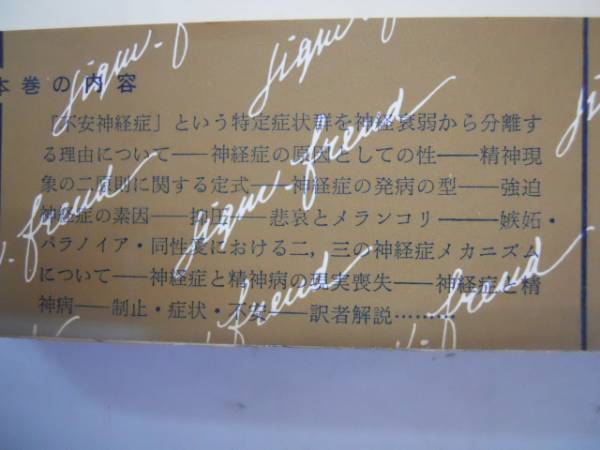 本巻の内容
「不安神経症」という特定症状群を神経衰弱から分離す
る理由について——神経症の原因としての性——精神現
象の二原則に関する定式——神経症の発病の型——強迫
神経症の素因——抑圧——悲哀とメランコリー——嫉妬・
パラノイア・同性愛における二，三の神経症メカニズム
について——神経症と精神病の現実喪失——神経症と精
神病——制止・症状・不安——訳者解説………
sigm. freud